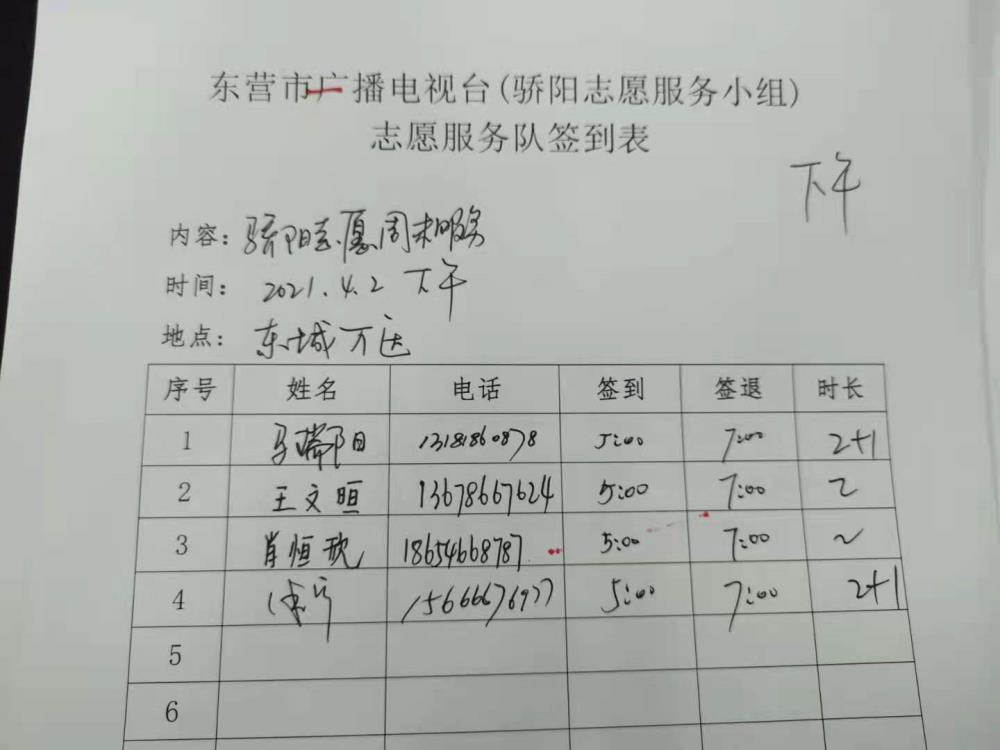 东营市广播电视台(骄阳志愿服务小组)
志愿服务队签到表
下午
内容: 骄阳志愿周末服务
时间: 2021.4.2 下午
地点: 东城万达
序号 姓名 电话 签到 签退 时长
1 马瑞阳 13181860878 5:00 7:00 2+1
2 王文晅 13678667624 5:00 7:00 2
3 肖恒 18654668787 5:00 7:00 2
4 15666676977 5:00 7:00 2+1
5
6